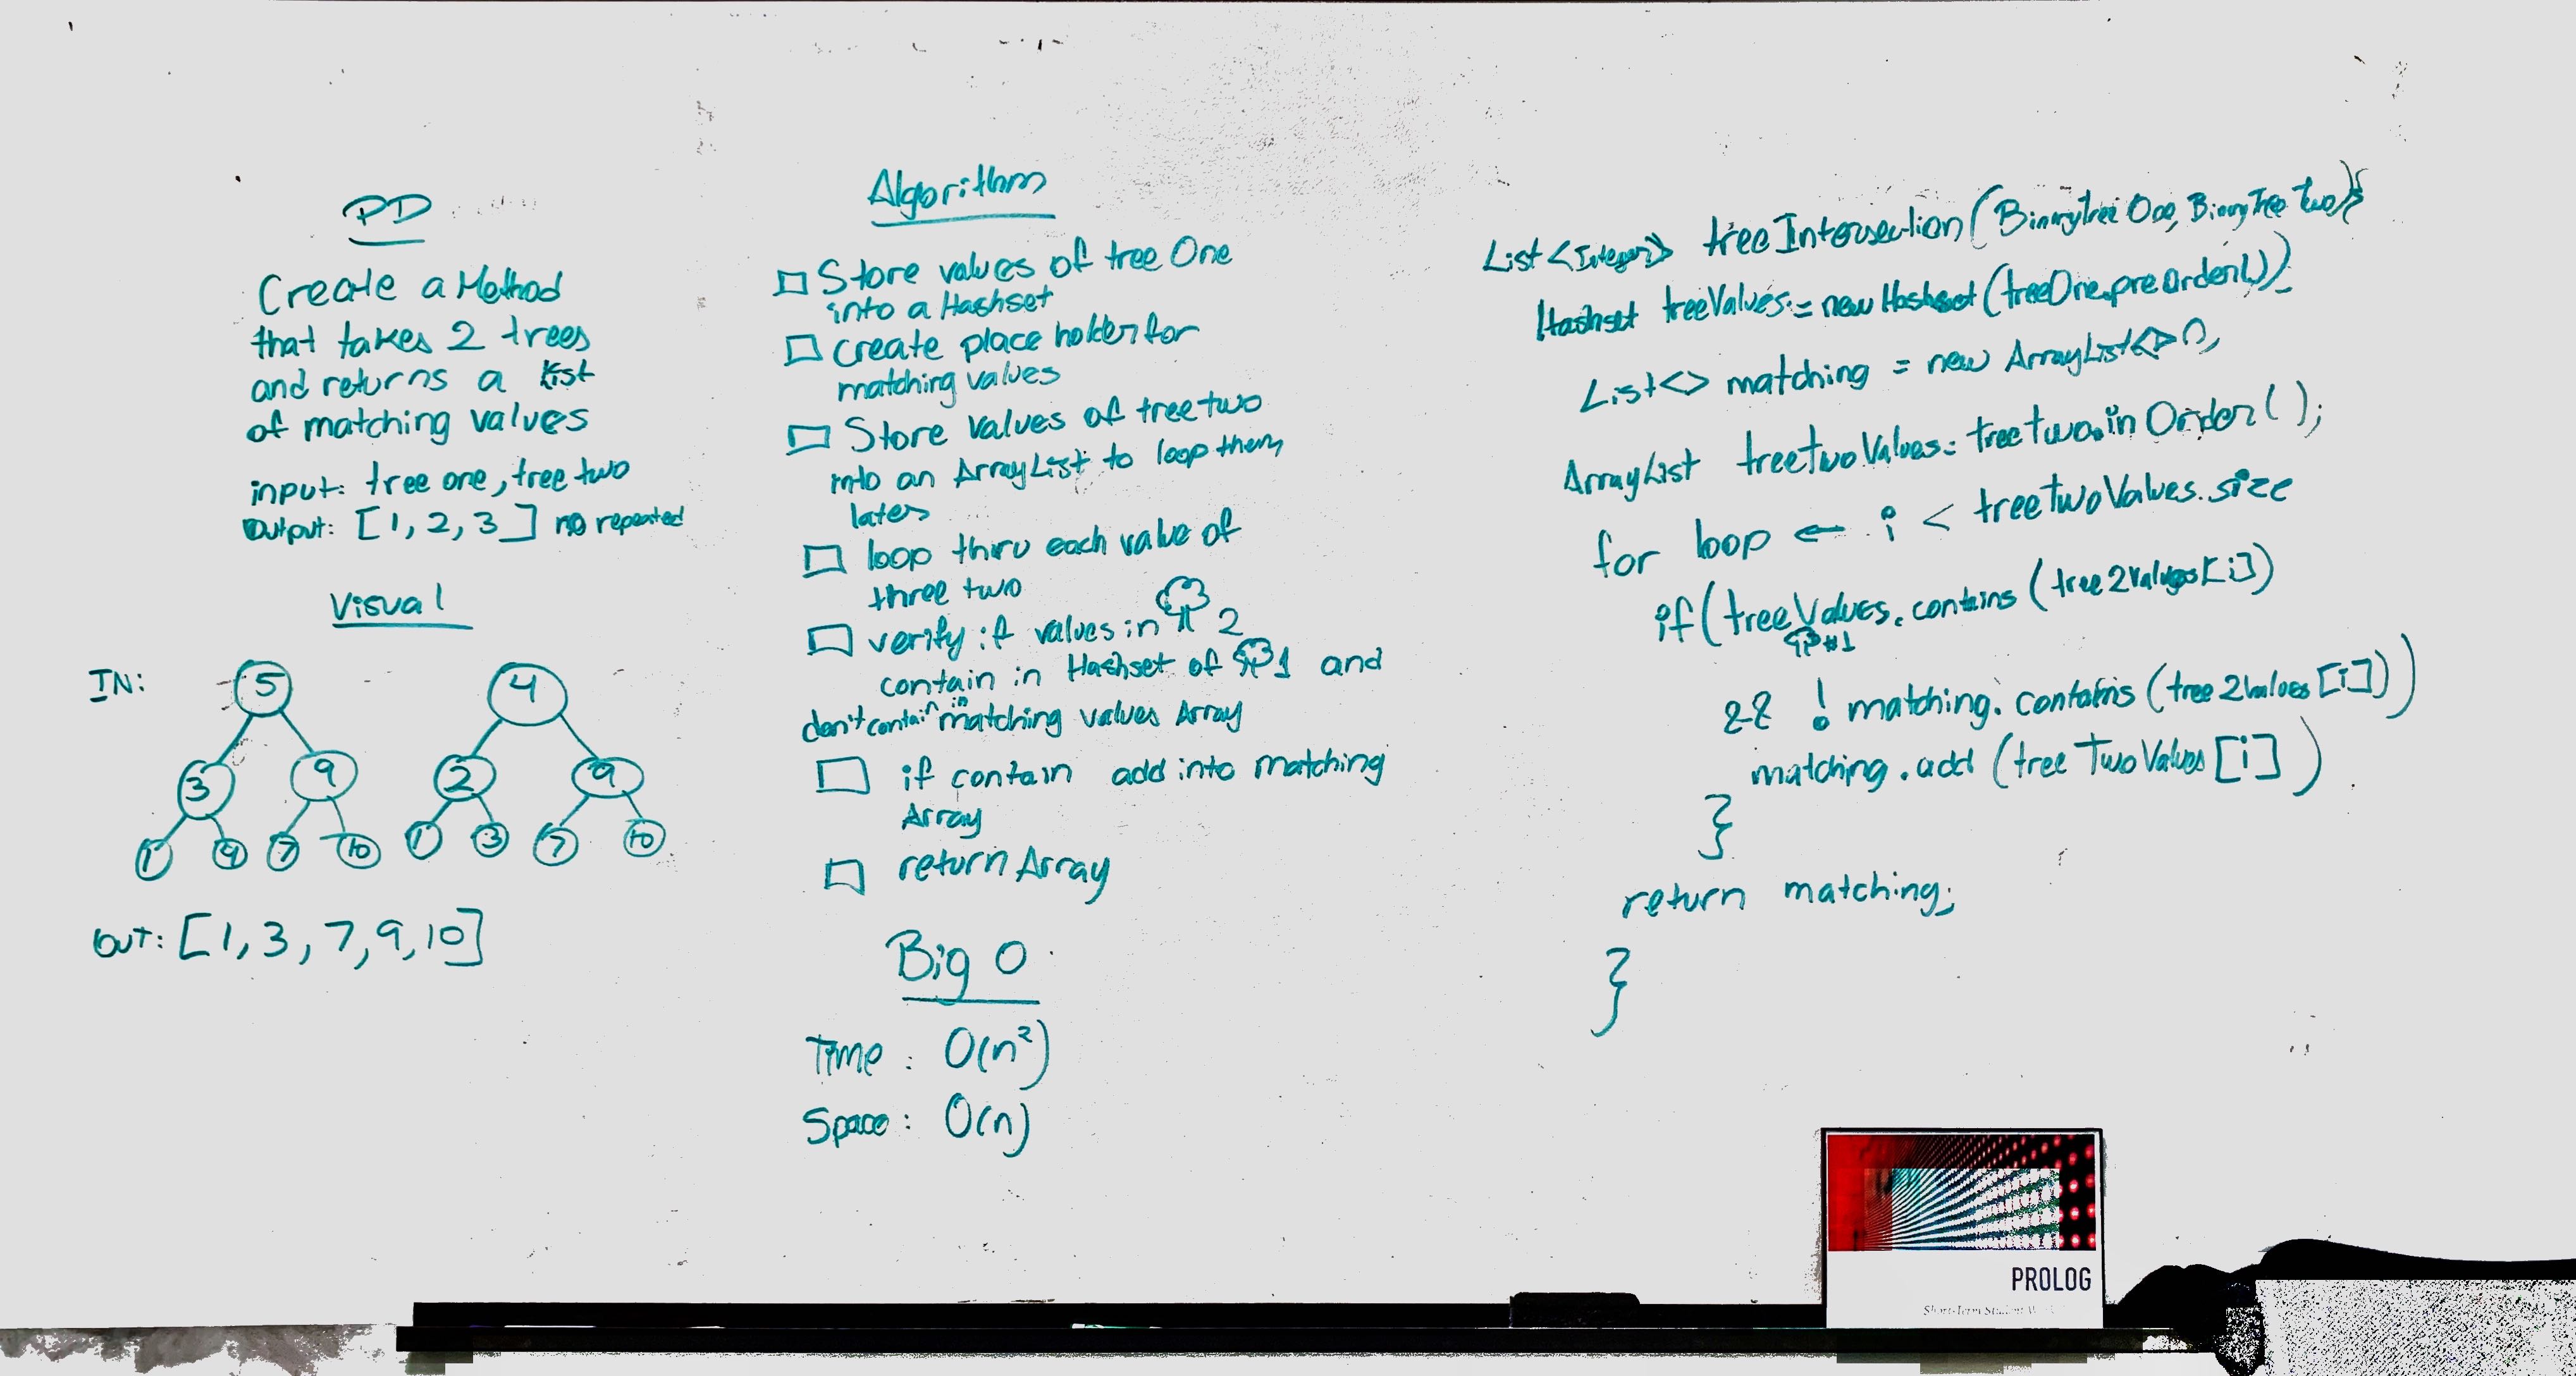 PD
Create a Method
that takes 2 trees
and returns a List
of matching values
input: tree one, tree two
Output: [1, 2, 3] no repeated
Visual
IN:
5
3 9
1 4 7 10
4
2 9
1 3 7 10
OUT: [1, 3, 7, 9, 10]
Algorithm
Store values of tree One
into a Hashset
create place holder for
matching values
Store values of tree two
into an ArrayList to loop them
later
loop thru each value of
three two
verify if values in 2
contain in Hashset of 1 and
don't contain in matching values Array
if contain add into matching
Array
return Array
Big O
Time: O(n²)
Space: O(n)
List<Integer> treeIntersection(BinaryTree One, BinaryTree two){
Hashset treeValues = new Hashset(treeOne.preOrder())
List<> matching = new ArrayList<>();
ArrayList treetwoValues = treetwo.inOrder();
for loop ← i < treetwoValues.size
if(treeValues.contains(tree2values[i])
#1
&& ! matching.contains(tree2values[i]))
matching.add(treeTwoValues[i])
}
return matching;
}
PROLOG